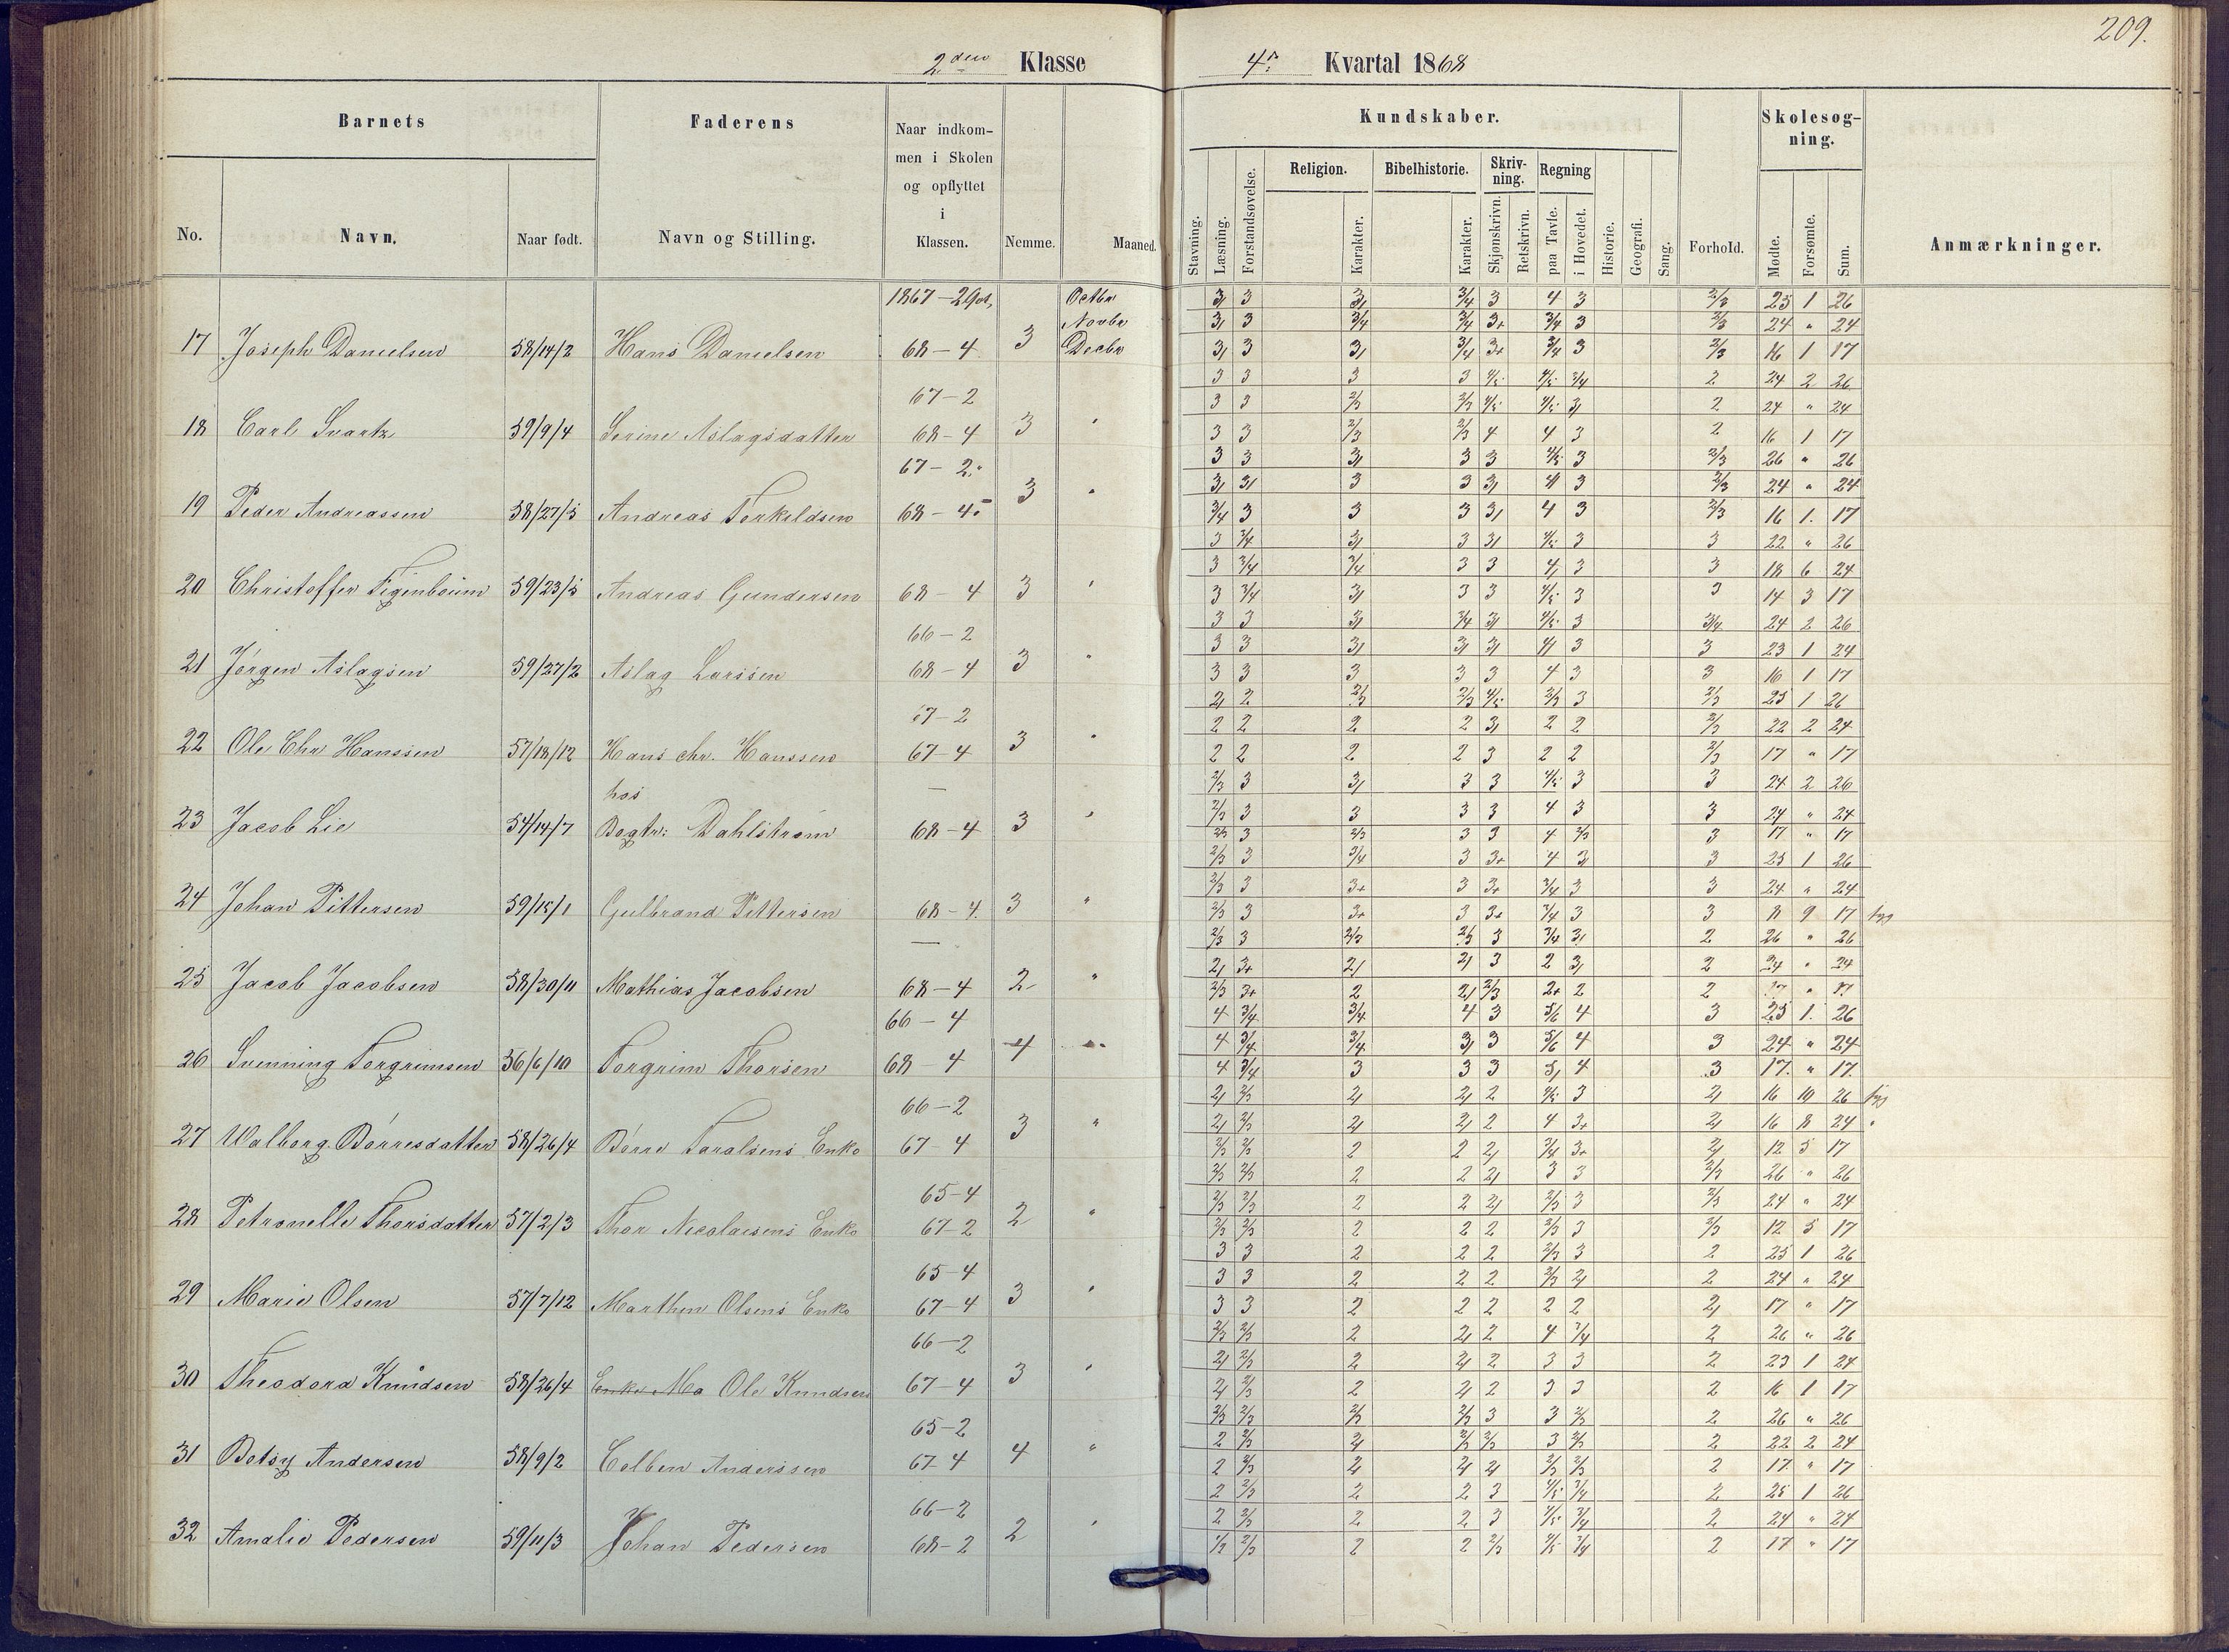 209.
2den Klasse
4de Kvartal 1868
Barnets
Faderens
Naar indkom-
men i Skolen
og opflyttet
i
Klassen.
No.
Navn.
Naar født.
Navn og Stilling.
Nemme.
Maaned.
Kundskaber.
Stavning.
Læsning.
Forstandsøvelse.
Religion.
Karakter.
Bibelhistorie.
Karakter.
Skriv-
ning.
Skjønskrivn.
Retskrivn.
Regning
paa Tavle.
i Hovedet.
Historie.
Geografi.
Sang.
Forhold.
Skolesøg-
ning.
Mødte.
Forsømte.
Sum.
Anmærkninger.
1867-2
Octbr
Novbr
17 Joseph Danielsen 58/14/2 Hans Danielsen 68-4 3 Decbr
67-2
18 Carl Svartz 59/9/4 Serine Aslagsdatter 68-4 3 "
67-2
19 Peder Andreassen 58/27/5 Andreas Terkeldsen 68-4 3 "
20 Christoffer Figenboum 59/23/5 Andreas Gundersen 68-4 3 "
66-2
21 Jørgen Aslagsen 59/27/2 Aslag Larssen 68-4 3 "
67-2
22 Ole Chr Hanssen 57/18/12 Hans chr. Hanssen 67-4 3 "
hos
23 Jacob Lie 54/14/7 Bogtr: Dahlstrøm 68-4 3 "
24 Johan Pittersen 59/15/1 Gulbrand Pittersen 68-4. 3 "
25 Jacob Jacobsen 58/30/11 Mathias Jacobsen 68-4 2 "
66-4
26 Svenning Torgrimsen 56/6/10 Torgrim Thorsen 68-4 4 "
66-2
27 Valborg Børresdatter 58/26/4 Børre Taralsens Enke 67-4 3 "
65-4
28 Petronelle Thorsdatter 57/2/3 Thor Nicolaisens Enke 67-2 2 "
65-4
29 Marie Olsen 57/7/12 Marthin Olsens Enke 67-4 3 "
66-2
30 Theodora Knudsen 58/26/4 Enke Ma Ole Knudsen 67-4 3 "
65-2
31 Betsy Andersen 58/9/2 Colben Anderssen 67-4 4 "
66-2
32 Amalie Pedersen 59/11/3 Johan Pedersen 68-2 2 "
3/ 3 3/ 3/4 3 4 3 2/3 25 1 26
3/ 3 3/4 3/4 3+ 3/4 3 2/3 24 " 24
3/ 3 3/ 3/4 3+ 3/4 3 2/3 16 1 17
3 3 3 3 4/5 4/5 3/4 2 24 2 26
3 3 2/3 2/3 4/5 4/5 3/ 2 24 " 24
3 3 2/3 2/3 4 4 3 2 16 1 17
3 3 3/ 3 3 4/5 3 2/3 26 " 26
3/ 3/ 3 3 3/ 4/ 3 2/3 24 " 24
3/4 3 3 3 3/ 4 3 2/3 16 1. 17
3 3/4 3/ 3 3/ 4/5 3 3 22 " 26
3 3/4 3/4 3 3 4/ 3 3 18 6 24
3 3/4 3/ 3 3 4/5 3 3 14 3 17
3 3 3/ 3/4 3/ 4/5 3 3/4 24 2 26
3 3 3/ 3/ 3/ 4/ 3 3 23 1 24
3 3 3 3 3 4 3 3 16 1 17
2/ 2 2/3 2/3 4/5 2/3 3 2/3 25 1 26
2 2 2 2 3/ 2 2 2/3 22 2 24
2 2 2 2 3 2 2 2/3 17 " 17
2/3 3 3/ 3 3 4/5 3 3 24 2 26
2/3 3 3 3 3 4 3 3 24 " 24
2/3 3 2/3 3 3 4 2/3 3 17 " 17
2/3 3 3/4 3 3+ 4 3/ 3 25 1 26
2/3 3 3+ 3 3+ 3/4 3 3 24 " 24
2/3 3 3+ 3 3+ 3/4 3 3 8 9 17 syg
2/3 3 2/3 2/3 3 3/4 3/ 2 26 " 26
2/ 3+ 2/ 2/ 3 2 3/ 2 24 " 24
2/3 3+ 2 2/ 2/3 2+ 2 2 17 " 17
4 3/4 3/4 4 3 5/6 4 3 25 1. 26
4 3/4 3/4 3/ 3 5/6 4 3 24 " 24
4 3/4 3 3 3 5/ 4 3 17. " 17.
2/ 2/3 2/ 2/ 2 4/5 3 2/ 16 10 26 syg
2/ 2/3 2/ 2/ 2 4 3+ 2/ 16 8 24 "
2/3 2/3 2 2 2/ 3/4 3+ 2/ 12 5 17
2/3 2/3 2 2 2/ 3 3 2/3 26 " 26
2/3 2/3 2 2 2/ 2/3 3 2/3 24 " 24
2/3 2/3 2 2 2 2/3 3 2/3 12 5 17
3 3 2 2 2 2/3 3 2 25 1 26
3 3 2 2 2 2/3 2/ 2 24 " 24
3 3 2 2 2 2 2 2/ 17 " 17
2/3 2/3 2 2/ 2 4 3/4 2 26 " 26
2/ 2/3 2 2/ 2 3 3 2 23 1 24
2/ 2/3 2 2/ 2 3 3 2 16 1 17
2/3 2/3 2/3 2/3 3 3 2/3 2 26 " 26
2 2/3 2/ 2/3 2/3 3 2/3 2 22 2 24
2 2/3 2/ 2/ 2/ 2/3 2/3 2 17 " 17
2 2/3 2 2 3 4/5 3/4 2 25 1 26
2 2/3 2 2 3 4/5 3/4 2 24 " 24
1/2 2/3 2 2 2/3 4/5 3/4 2 17 " 17